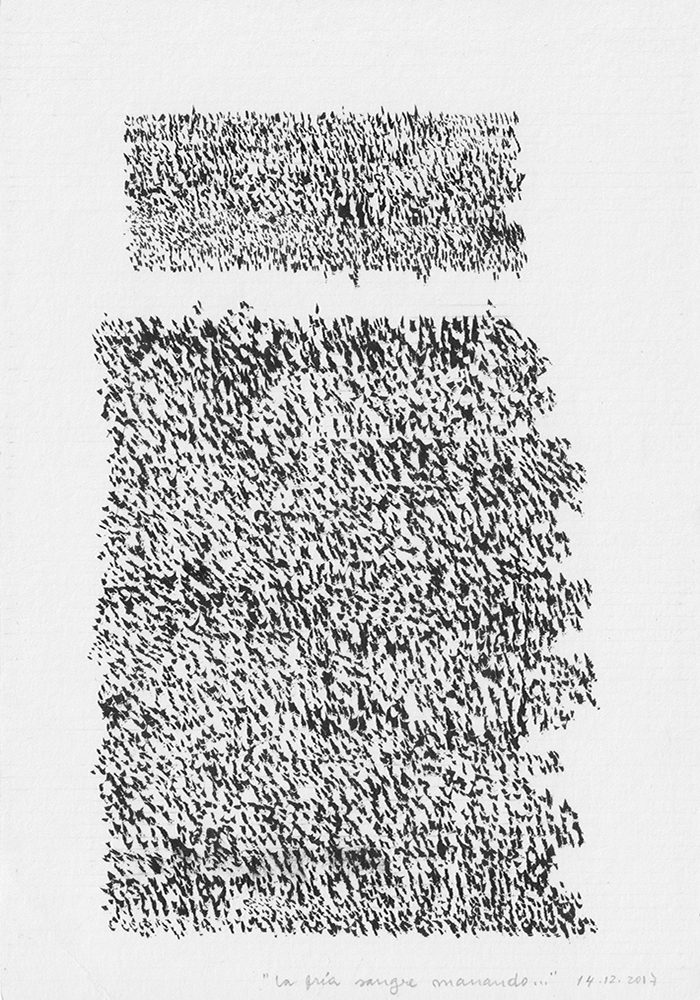 "la fría sangre manando..." 14.12.2017